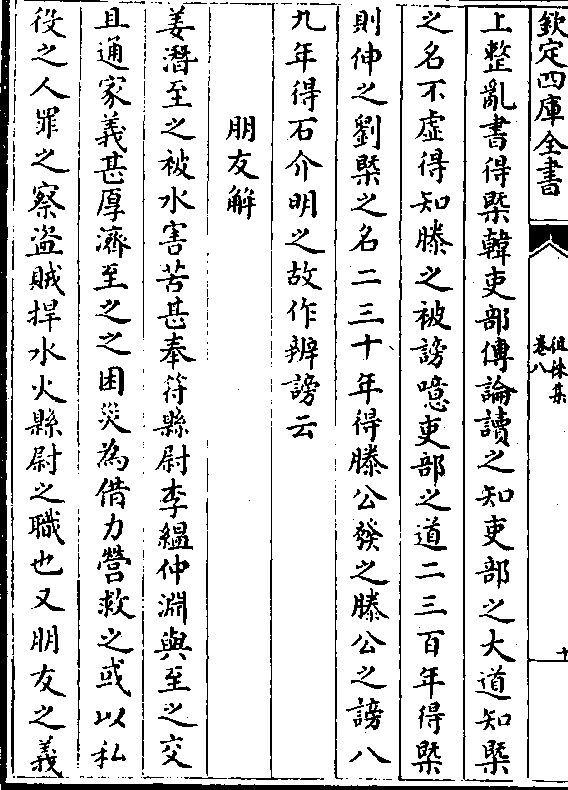 欽定四庫全書
徂徠集
卷八
十
上整亂書得槩韓吏部傳論讀之知吏部之大道知槩
之名不虛得知滕之被謗噫吏部之道二三百年得槩
則伸之劉槩之名二三十年得滕公發之滕公之謗八
九年得石介明之故作辨謗云
朋友解
姜潛至之被水害苦甚奉符縣尉李縕仲淵與至之交
且通家義甚厚濟至之之困災為借力營救之或以私
役之人罪之察盜賊捍水火縣尉之職也又朋友之義